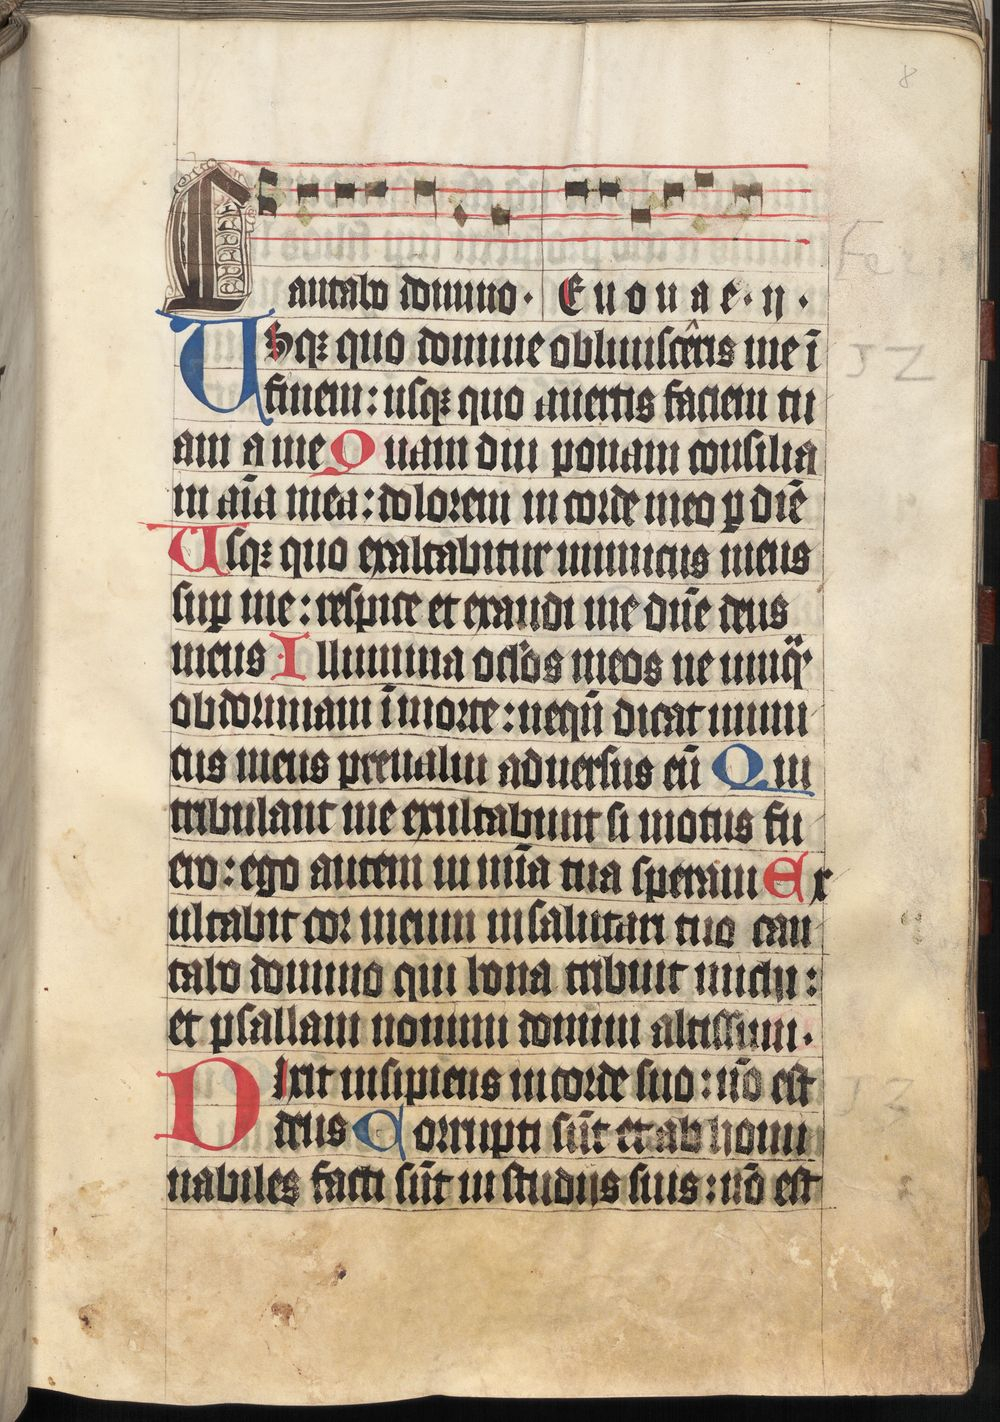 8
Cantabo domino. Euouae. ij.
Usqꝫ quo domine obliuiscêris me ī
finem: usqꝫ quo auertis faciem tu
am a me Quam diu ponam consilia
in aīa mea: dolorem in corde meo ꝑ diē
Usqꝫ quo exaltabitur inimicus meus
suꝑ me: respice et exaudi me dn̄e deus
meus Illumina oclos meos ne unq̄
obdormiam ī morte: neqn̄ dicat inimi
cus meus preualui aduersus eū Qui
tribulant me exultabunt si motus fu
ero: ego autem in mīa tua speraui Ex
ultabit cor meum in salutari tuo can
tabo domino qui bona tribuit michi:
et psallam nomini domini altissimi.
Dixit insipiens in corde suo: nō est
deus Corrupti sūt et abhomi
nabiles facti sūt in studijs suis: nō est
12
13